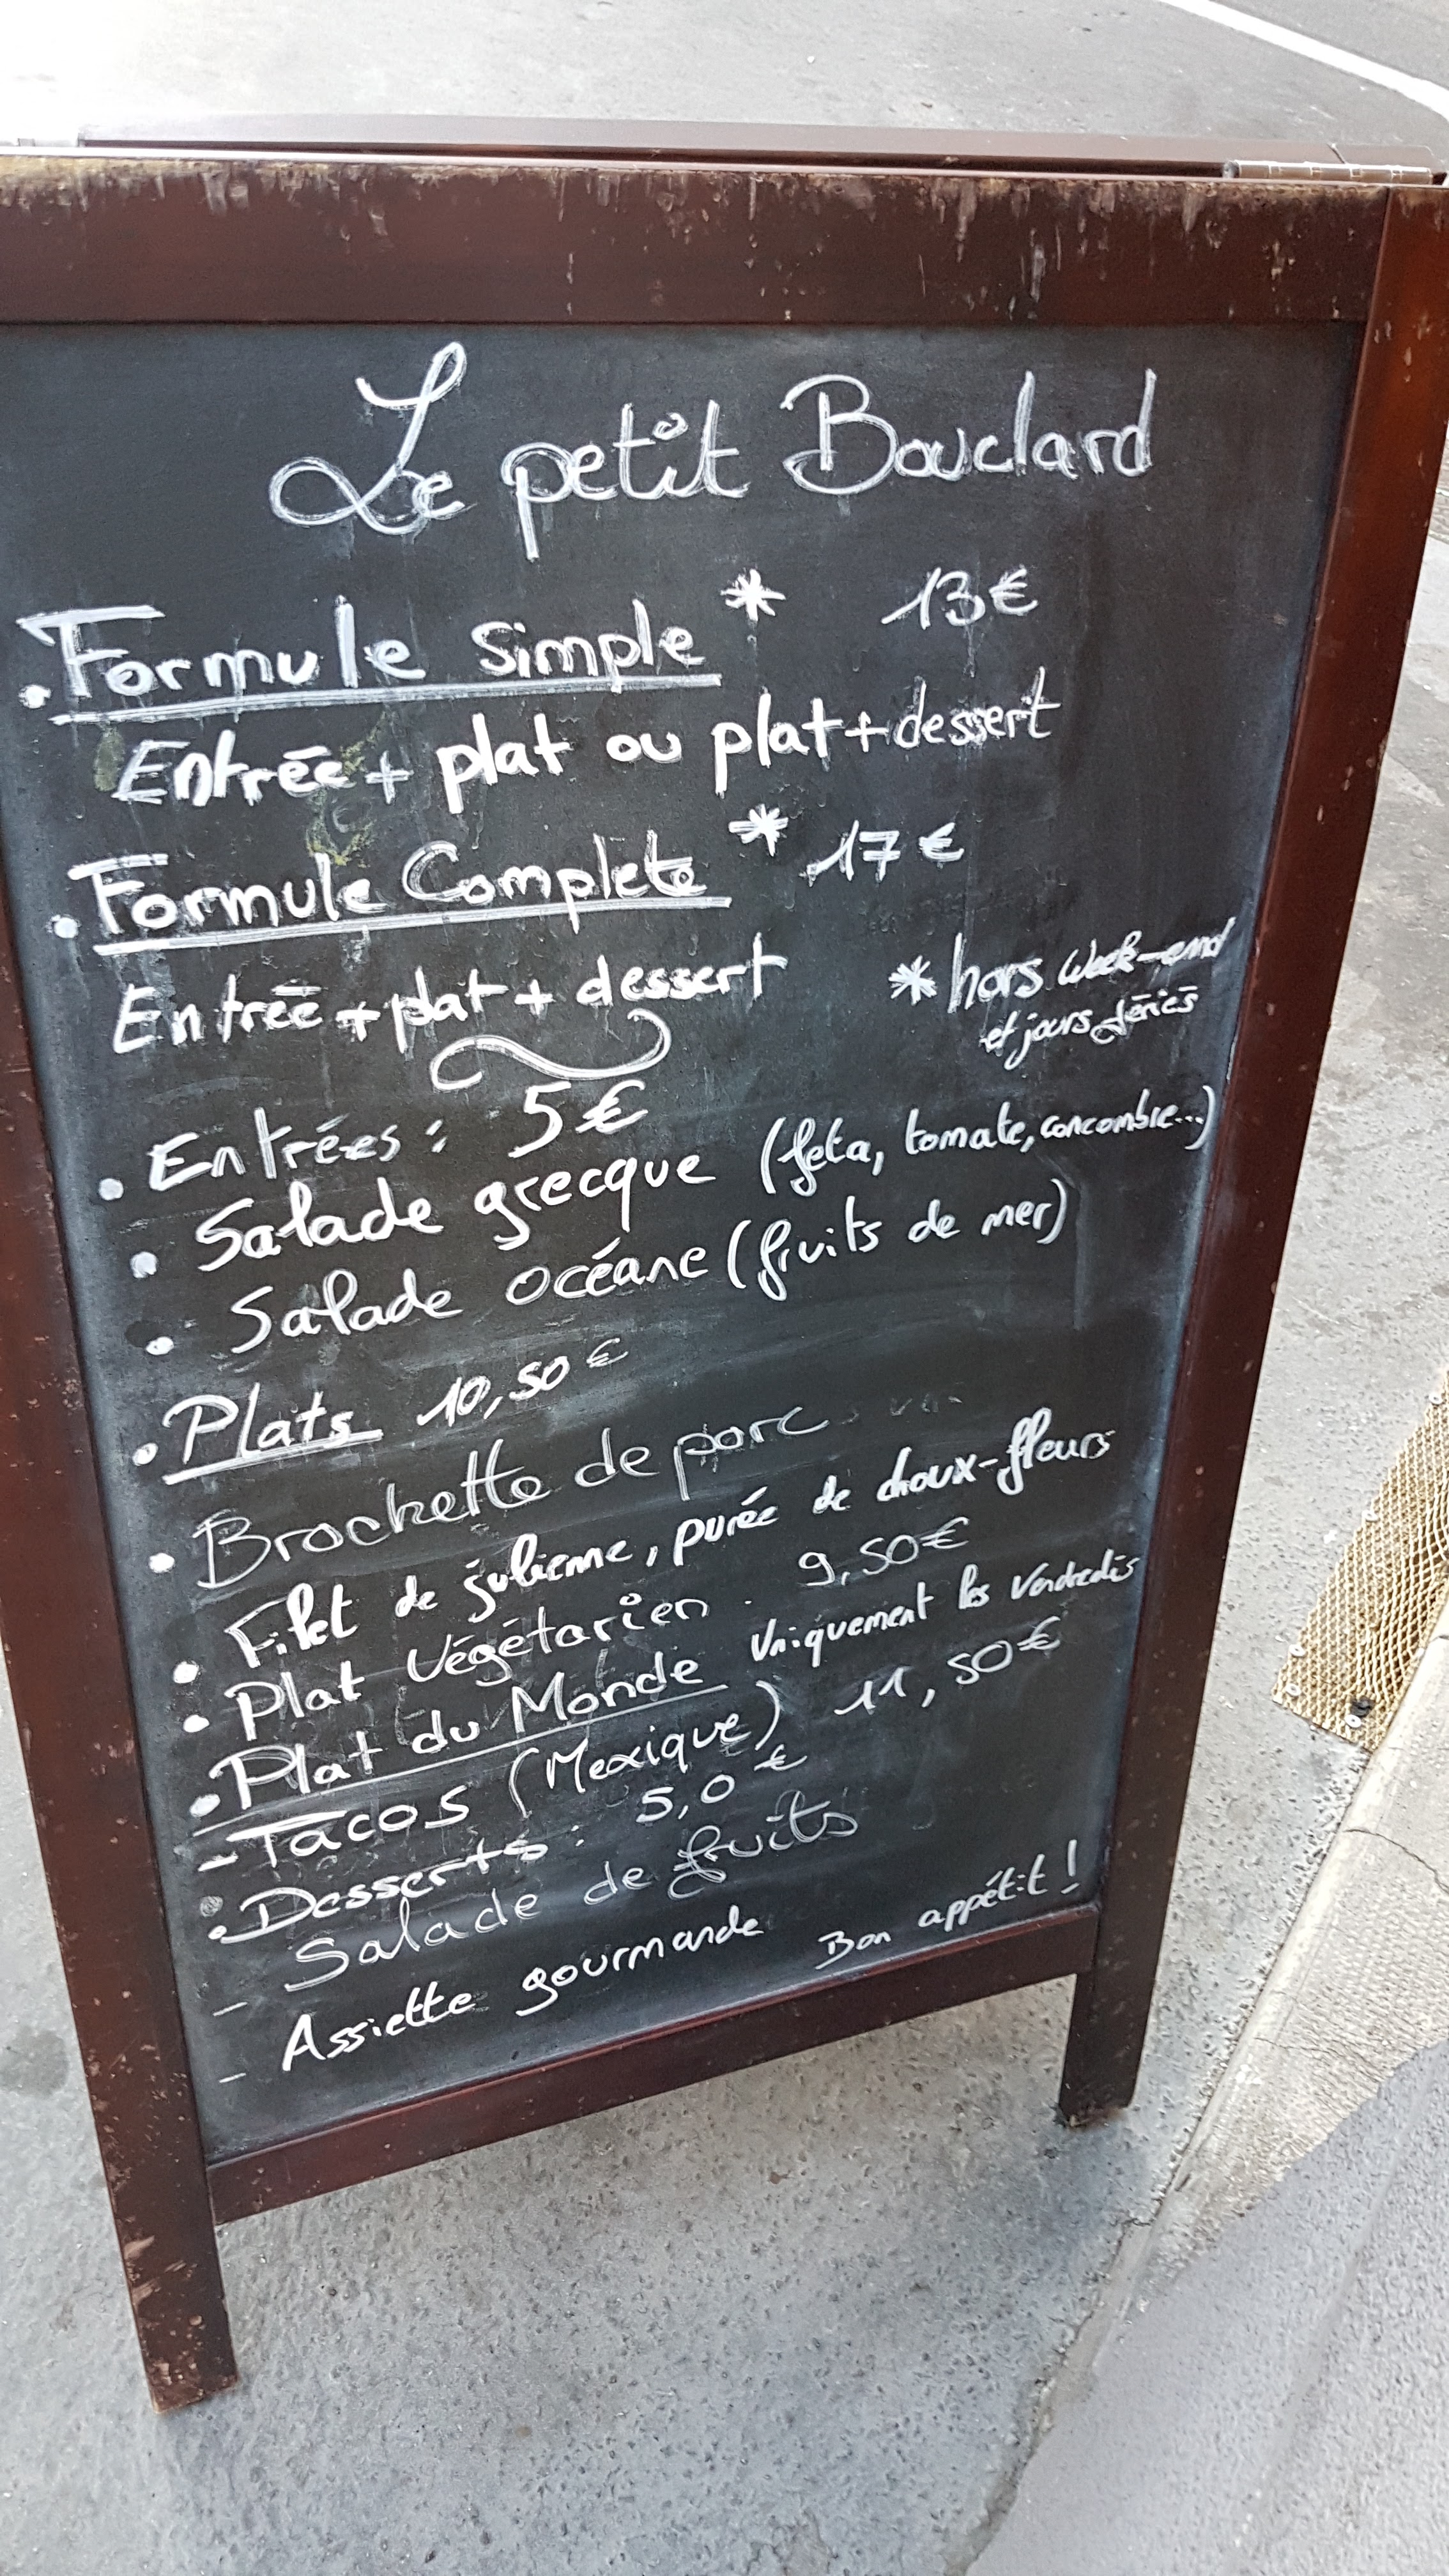 Le petit Bouclard
. Formule Simple * 13€
Entrée + plat ou plat + dessert
. Formule Complete * 17€
Entrée + plat + dessert
* hors week-end
et jours fériés
. Entrées : 5€
. Salade grecque (feta, tomate, concombre...)
. Salade océane (fruits de mer)
. Plats 10,50€
. Brochette de porc
. Filet de julienne, purée de choux-fleurs
. Plat végétarien. 9,50€
. Plat du Monde Uniquement les vendredis
- Tacos (Mexique) 11,50€
. Desserts : 5,0€
- Salade de fruits
- Assiette gourmande
Bon appétit !